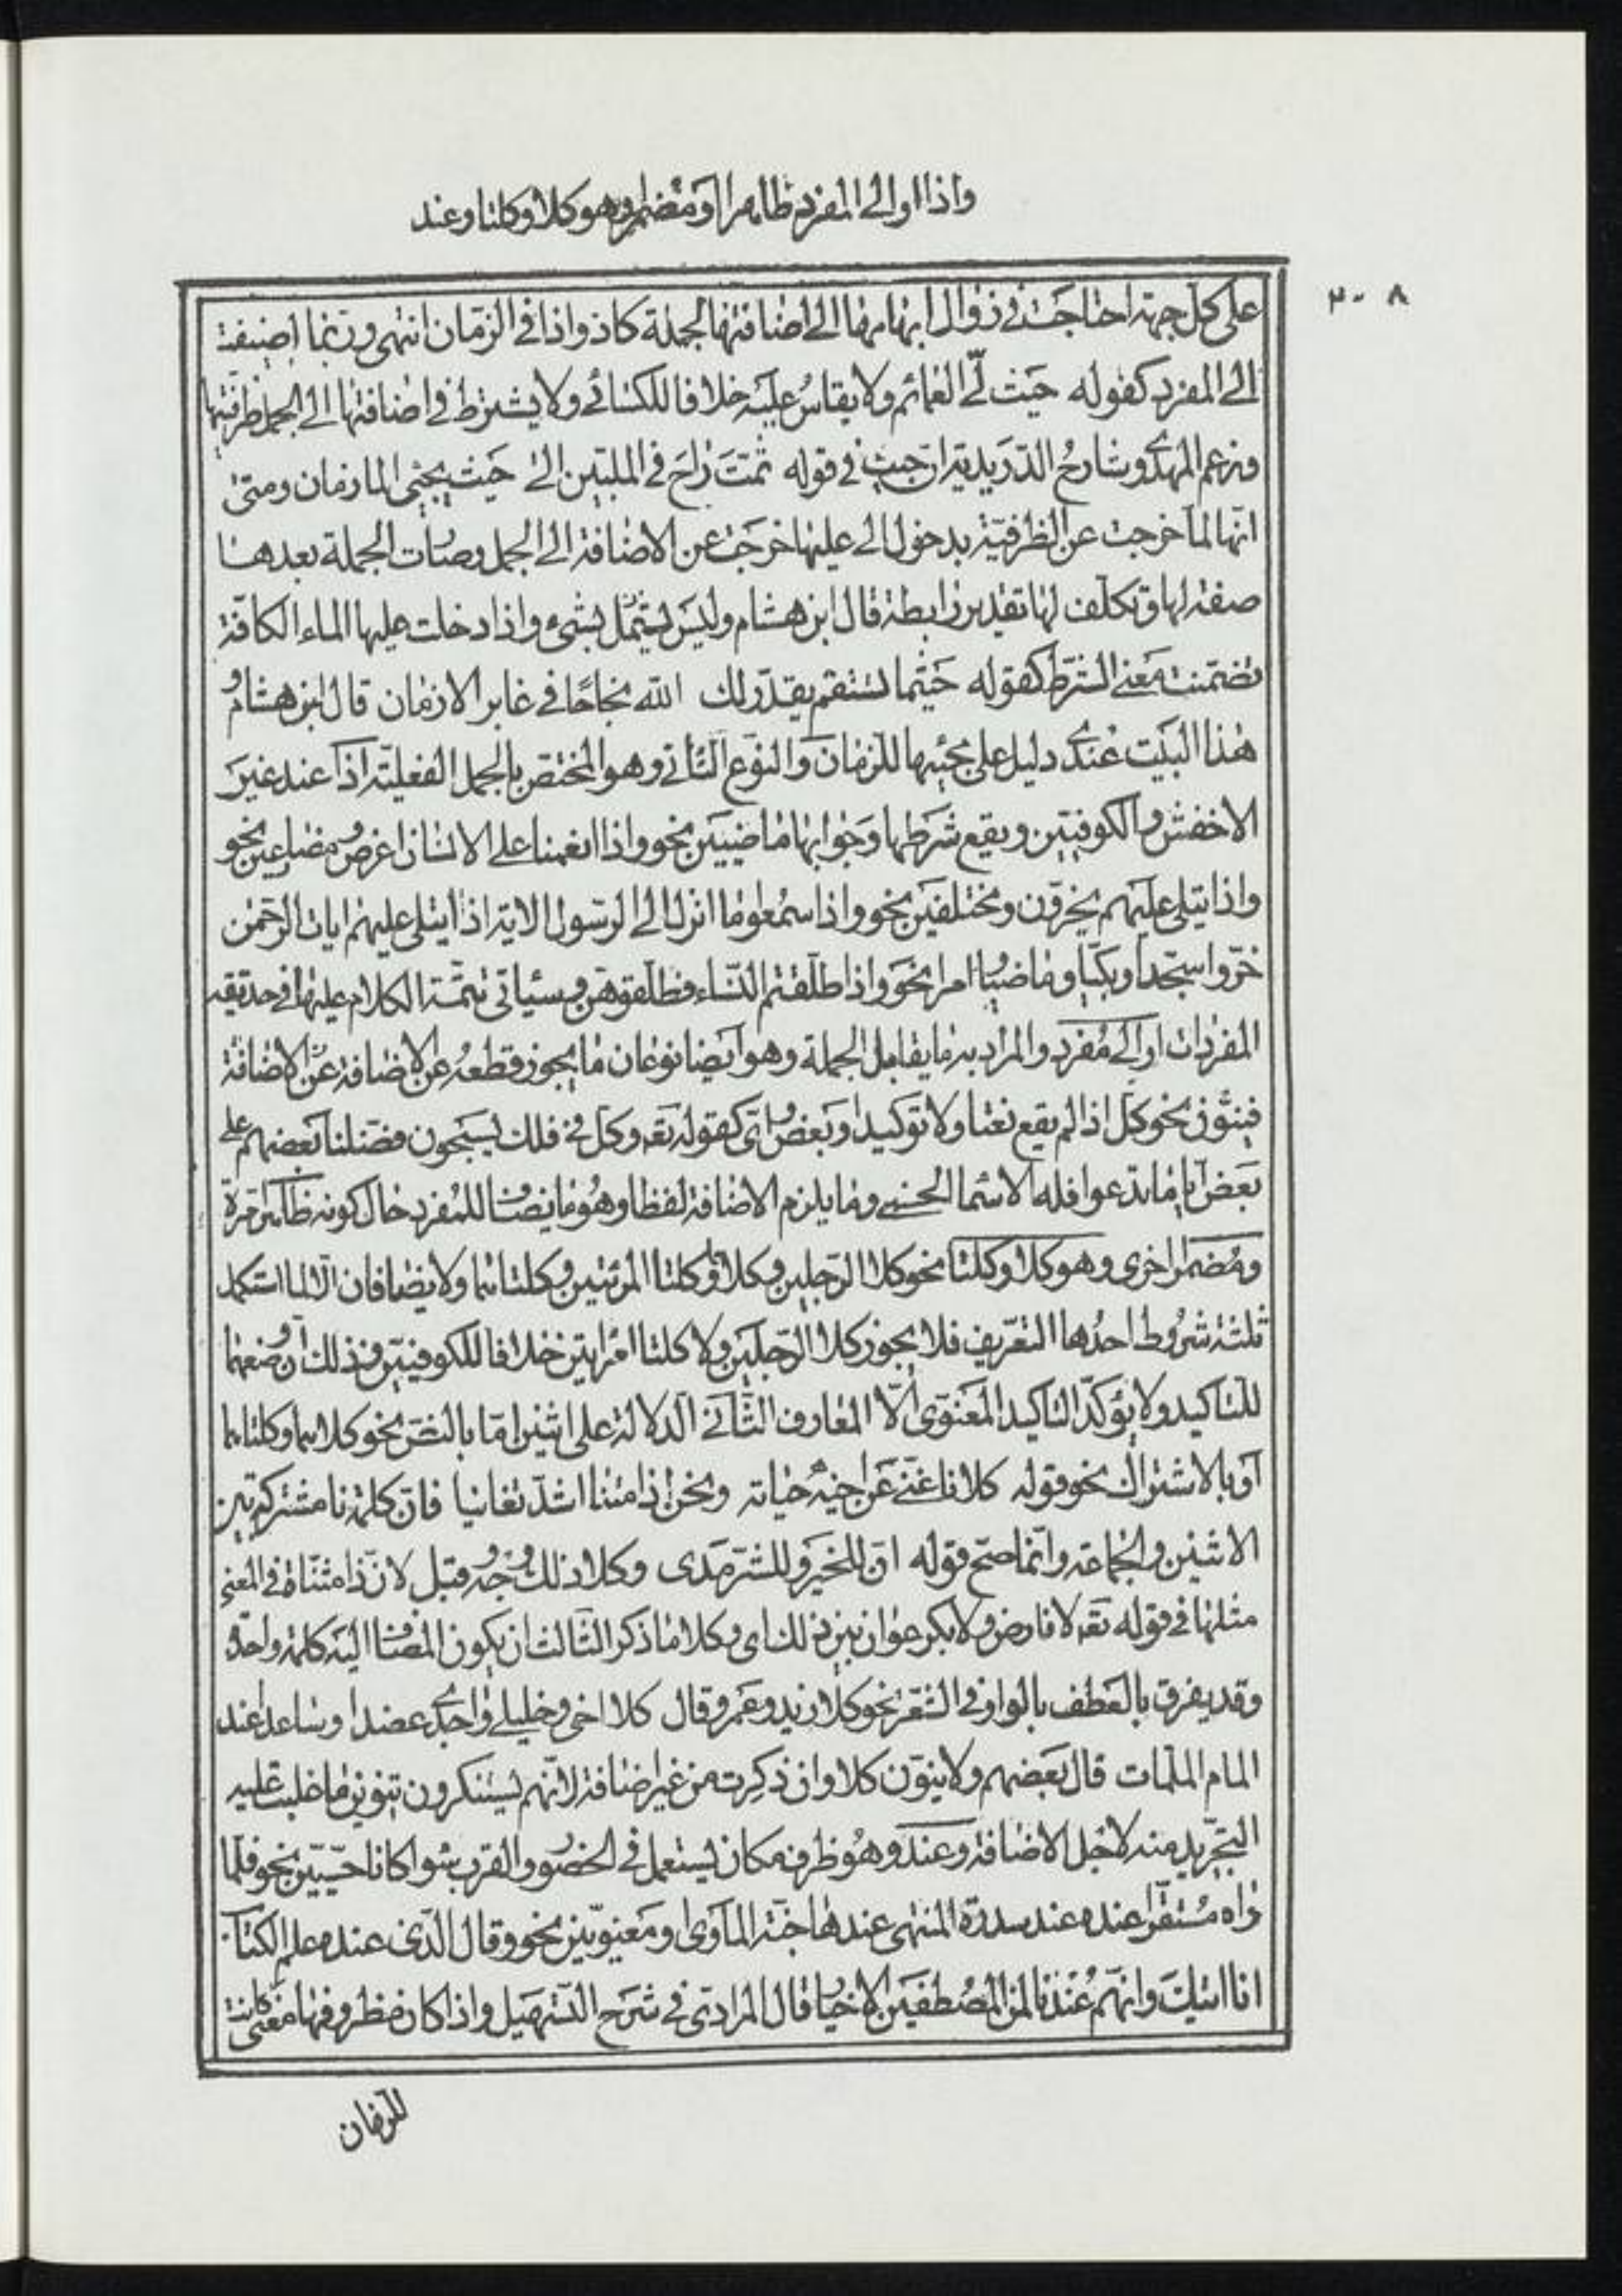 واذا او الى المفرد ظاهرا او مضمرا وهو كلا وكلتا وعند
٣٠٨
على كل جهة احتاجت في زوال ابهامها الى اضافتها لجملة كاذ واذا في الزمان انتهى وربما اضيفت
الى المفرد كقوله حيث لي العمائم ولا يقاس عليه خلافا للكسائي ولا يشترط في اضافتها الى الجمل ظرفيتها
وزعم المهدوي شارح الدريدية ان حيث في قوله ثمت راح في الملبين الى حيث يحجى المازمان ومنى
انها لما خرجت عن الظرفية بدخول الى عليها خرجت عن الاضافة الى الجمل وصارت الجملة بعدها
صفة لها وتكلف لها تقدير رابطة قال ابن هشام وليس بشيء واذا دخلت عليها الماء الكافة
تضمنت معنى الشرط كقوله حيثما تستقم يقدر لك الله نجاحا في غابر الازمان قال ابن هشام و
هذا البيت عندي دليل على مجيئها للزمان والنوع الثاني وهو المختص بالجمل الفعلية اذا عند غير
الاخفش والكوفيين ويقع شرطها وجوابها ماضيين نحو واذا انعمنا على الانسان اعرض ومضارعين نحو
واذا يتلى عليهم يخرون ومختلفين نحو واذا سمعوا ما انزل الى الرسول الاية اذا يتلى عليهم ايات الرحمن
خروا سجدا وبكيا وماضيا امرا نحو واذا طلقتم النساء فطلقوهن وسياتي تتمة الكلام عليها في حديقة
المفردات او الى مفرد والمراد به ما يقابل الجملة وهو ايضا نوعان ما يجوز قطعه عن الاضافة عن الاضافة
فينون نحو كل اذا لم يقع نعتا ولا توكيدا وبعض واي كقوله تعه وكل في فلك يسبحون فضلنا بعضهم على
بعض ايا ما تدعوا فله الاسما الحسنى وما يلزم الاضافة لفظا وهو ما يضاف للمفرد حال كونه ظاهرا مرة
ومضمرا اخرى وهو كلا وكلتا نحو كلا الرجلين وكلاهما وكلتا المرئتين وكلتاهما ولا يضافان الا لما استكمل
ثلثة شروط احدها التعريف فلا يجوز كلا الرجلين ولا كلتا امراتين خلافا للكوفيين وذلك ان وضعهما
للتاكيد ولا يؤكد التاكيد المعنوي الا المعارف الثاني الدلالة على اثنين اما بالنص نحو كلاهما وكلتاهما
او بالاشتراك نحو قوله كلانا غني عن اخيه حياته ونحن اذا متنا اشد تغانيا فان كلمة نا مشتركة بين
الاثنين والجماعة وانما صح قوله ان للخير وللشر مدى وكلا ذلك وجه وقبل لان ذا مثناة في المعنى
مثلها في قوله تعه لا فارض ولا بكر عوان بين ذلك اي وكلا ما ذكر الثالث ان يكون المضاف اليه كلمة واحدة
وقد يفرق بالعطف بالواو في الشعر نحو كلا زيد وعمرو قال كلا اخي وخليلي واجدي عضدا وساعدا عند
المام الملمات قال بعضهم ولا ينون كلا وان ذكرت من غير اضافة لانهم يستنكرون تنوين ما غلبت عليه
التجريد منه لاجل الاضافة وعند وهو ظرف مكان يستعمل في الحضور والقرب سواء كانا حسيين نحو فلما
راه مستقرا عنده عند سدرة المنتهى عندها جنة الماوى او معنويين نحو وقال الذي عنده علم الكتاب
انا اتيك وانهم عندنا لمن المصطفين الاخيار قال المرادي في شرح التسهيل واذا كان مظروفها معنى كانت
للزمان